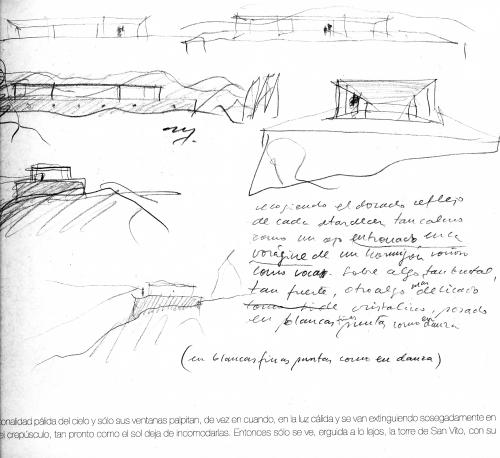 recogiendo el dorado reflejo
de cada atardecer tan calmo
como un ojo entronado en la
vorágine de un hormigón
como rocas. Sobre algo tan brutal,
tan fuerte, otro algo mas delicado
de cristalino, posado
en blancas finas puntas como en danza
(en blancas finas puntas como en danza)
onalidad pálida del cielo y sólo sus ventanas palpitan, de vez en cuando, en la luz cálida y se van extinguiendo sosegadamente en
el crepúsculo, tan pronto como el sol deja de incomodarlas. Entonces sólo se ve, erguida a lo lejos, la torre de San Vito, con su